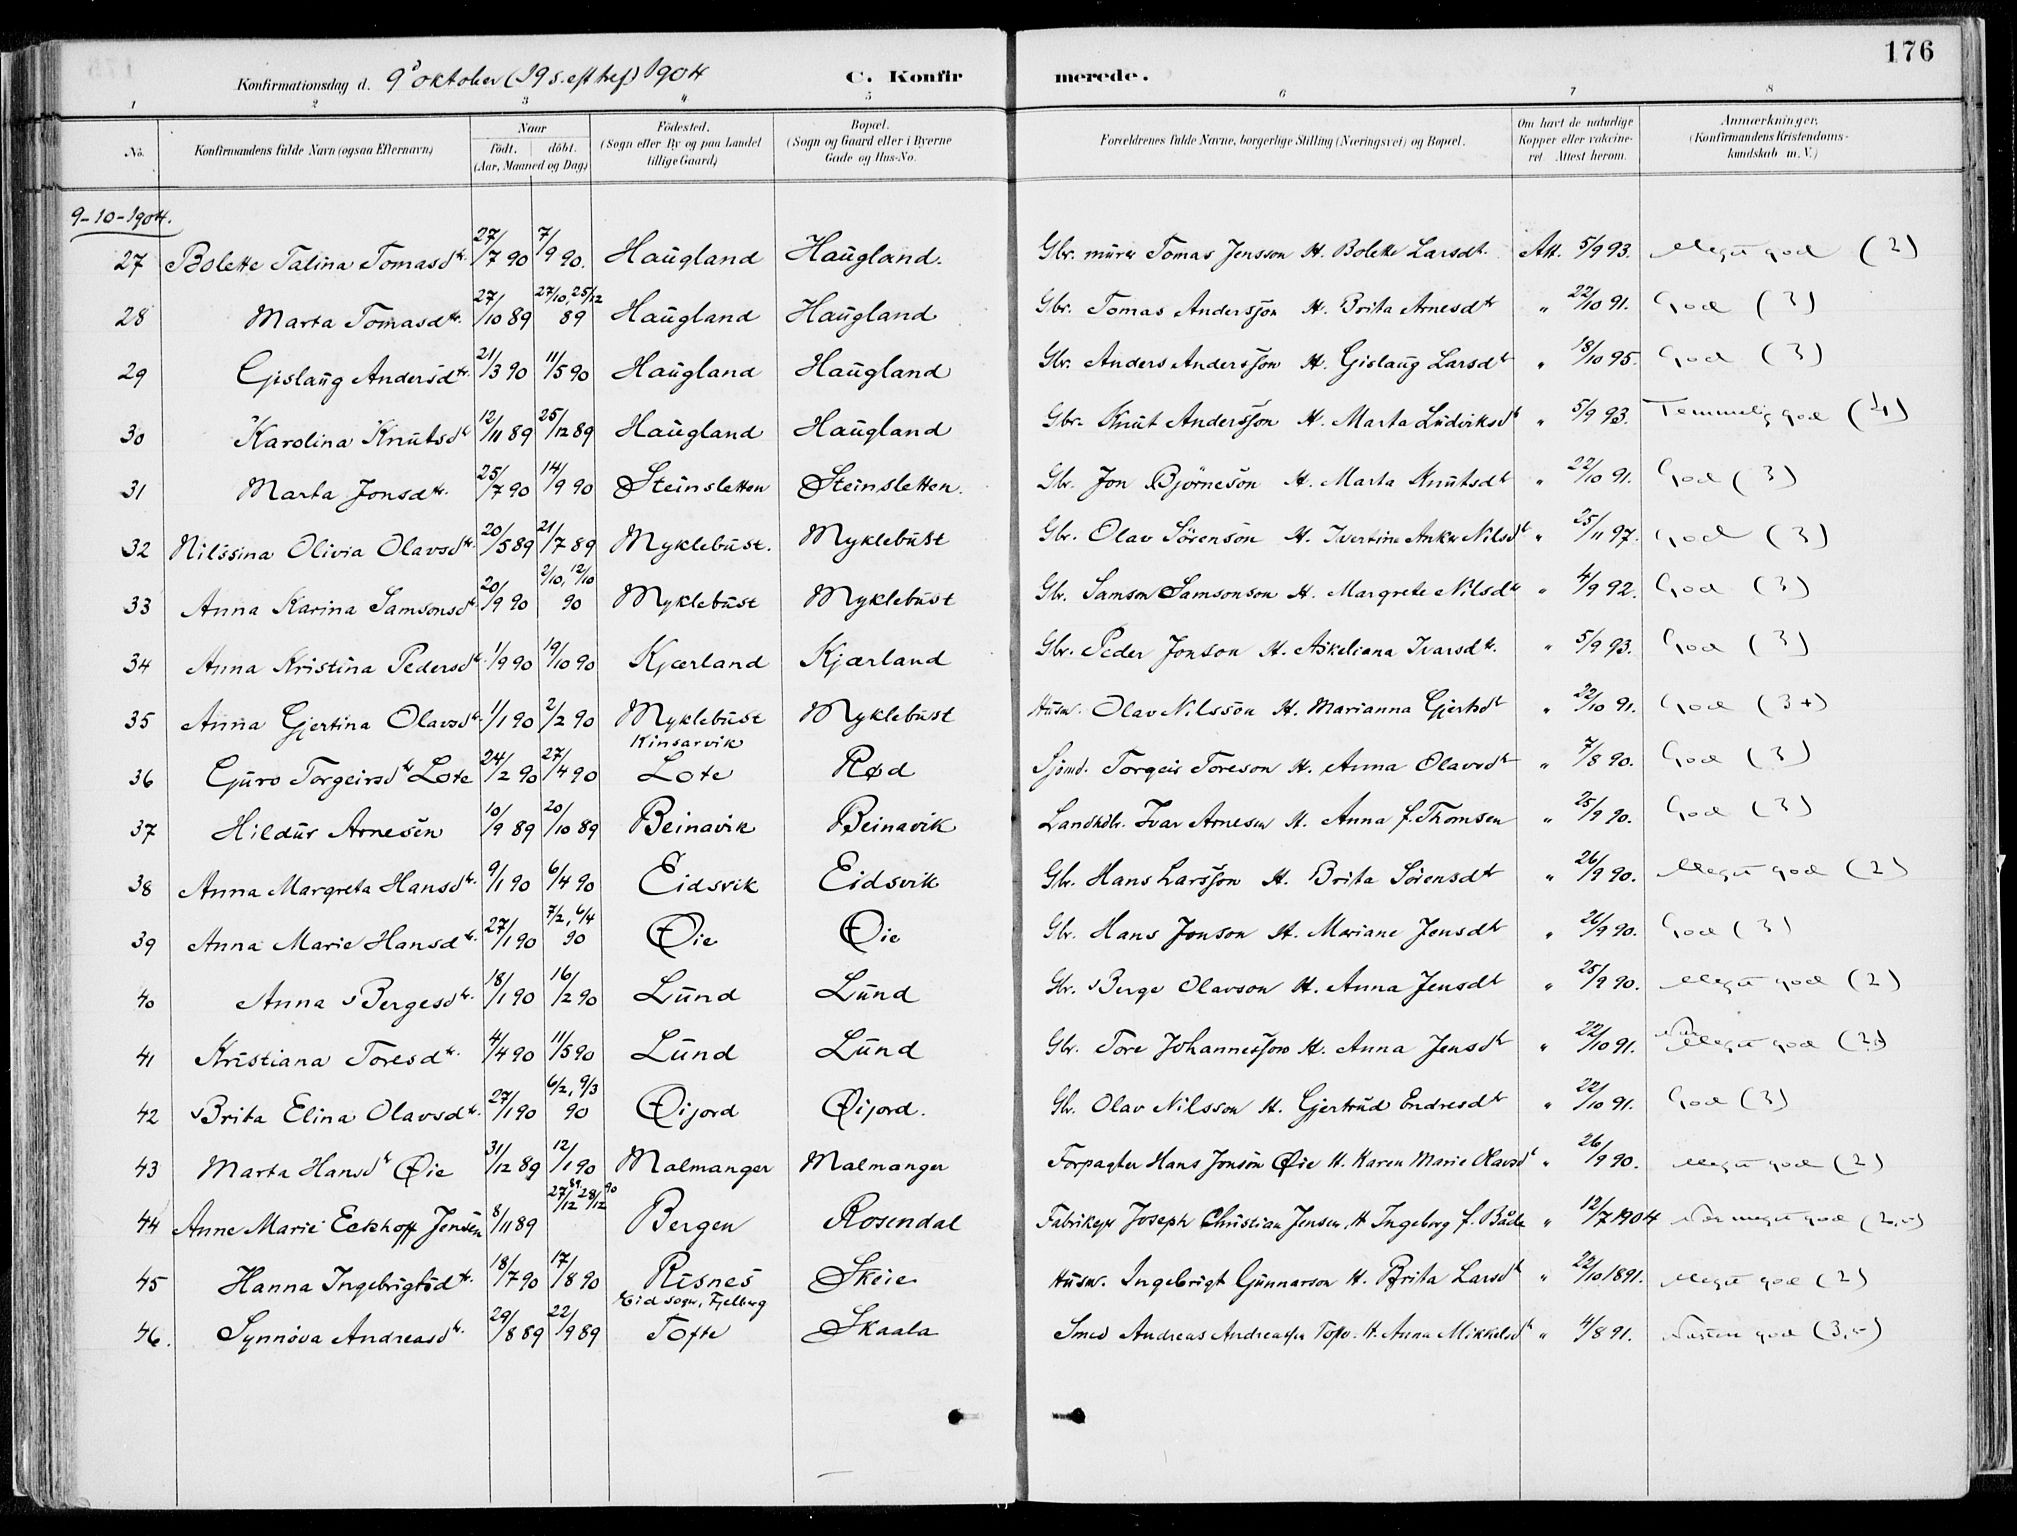 176
Konfirmationsdag d. 9de oktober (19 s. eft tref) 1904 C. Konfir merede.
1 2 3 4 5 6 7 8
No. Konfirmandens fulde Navn (ogsaa Efternavn) Naar födt. döbt. (Aar, Maaned og Dag) Födested. (Sogn eller By og paa Landet tillige Gaard) Bopæl. (Sogn og Gaard eller i Byerne Gade og Hus-No. Forældrenes fulde Navne, borgerlige Stilling (Næringsvei) og Bopæl. Om havt de naturlige Kopper eller vakcineret Attest herom. Anmærkninger, (Konfirmandens Kristendomskundskab m. V.)
9-10-1904.
27 Bolette Talina Tomasdtr. 27/7 90 7/9 90. Haugland Haugland. Gbr. murer Tomas Jensson H. Bolette Larsdt. Att. 5/9 93. Meget god (2)
28 Marta Tomasdtr. 27/10 89 27/10, 25/12 89 Haugland Haugland Gbr. Tomas Andersson H. Brita Arnesdtr " 22/10 91. God (3)
29 Gislaug Andersdtr. 21/3 90 11/5 90 Haugland Haugland Gbr. Anders Andersson H. Gislaug Larsdtr " 18/10 95. God (3)
30 Karolina Knutsdtr 12/11 89 25/12 89 Haugland Haugland Gbr. Knut Andersson H. Marta Ludviksdtr " 5/9 93. Temmelig god (4)
31 Marta Jonsdtr. 25/7 90 14/9 90 Steinsletten Steinsletten. Gbr. Jon Björneson H. Marta Knutsdtr " 22/10 91. God (3)
32 Nilssina Olivia Olavsdtr. 20/5 89 21/7 89 Myklebust. Myklebust Gbr. Olav Sörenson H. Ivertine Anker Nilsdtr " 25/11 97. God (3)
33 Anna Karina Samsonsdtr 20/9 90 2/10, 12/10 90 Myklebust Myklebust Gbr. Samson Samsonson H. Margrete Nilsdtr " 4/9 92. God (3)
34 Anna Kristina Pedersdtr. 1/9 90 19/10 90 Kjærland Kjærland Gbr. Peder Jonson H. Askeliana Ivarsdtr. " 5/9 93. God (3)
35 Anna Gjertina Olavsdtr. 1/1 90 2/2 90 Myklebust Myklebust Husm. Olav Nilsson H. Marianna Gjertsdtr " 22/10 91. God (3+)
36 Guro Torgeirsdtr Lote 24/2 90 27/4 90 Kinsarvik Lote Rød Sjømd. Torgeir Toreson H. Anna Olavsdtr " 7/8 90. God (3)
37 Hildur Arnesen 10/9 89 20/10 89 Beinavik Beinavik Landhdlr. Ivar Arnesen H. Anna f. Thomsen " 25/9 90. God (3)
38 Anna Margreta Hansdtr. 9/1 90 6/4 90 Eidsvik Eidsvik Gbr. Hans Larsson H. Brita Sörensdtr " 26/9 90. Meget god (2)
39 Anna Marie Hansdtr. 27/1 90 7/2, 6/4 90 Øie Øie Gbr. Hans Jonson H. Mariane Jensdtr " 26/9 90. God (3)
40 Anna Bergesdtr. 18/1 90 16/2 90 Lund Lund Gbr. Berge Olavson H. Anna Jensdtr " 25/9 90. Meget god (2)
41 Kristiana Toresdtr. 4/4 90 11/5 90 Lund Lund Gbr. Tore Johannesson H. Anna Jensdtr " 22/10 91. Meget god
42 Brita Elina Olavsdtr. 27/1 90 6/2, 9/3 90 Øijord Øijord. Gbr. Olav Nilsson H. Gjertrud Endresdtr " 22/10 91. God (3)
43 Marta Hansdtr Øie 31/12 89 12/1 90 Malmanger Malmanger Forpagter Hans Jonson Øie H. Karen Marie Olavsdtr " 26/9 90. Meget god (2)
44 Anne Marie Eckhoff Jensen 8/11 89 27/12 89 28/12 90 Bergen Rosendal Fabrikejer Joseph Christian Jensen, H Ingeborg f. Både " 12/7 1904 Nær meget god
45 Hanna Ingebrigtsdtr. 18/7 90 17/8 90 Risnes Skeie Husm. Ingebrigt Gunnarson H. Brita Larsdtr " 22/10 1891. Meget god (2)
46. Synnöva Andreasdtr. 29/8 89 22/9 89 Eid sogn, Fjelberg Tofte Skaala Smed Andreas Andreassen Tofte. H. Anna Mikkelsdtr " 4/8 91. Næsten god